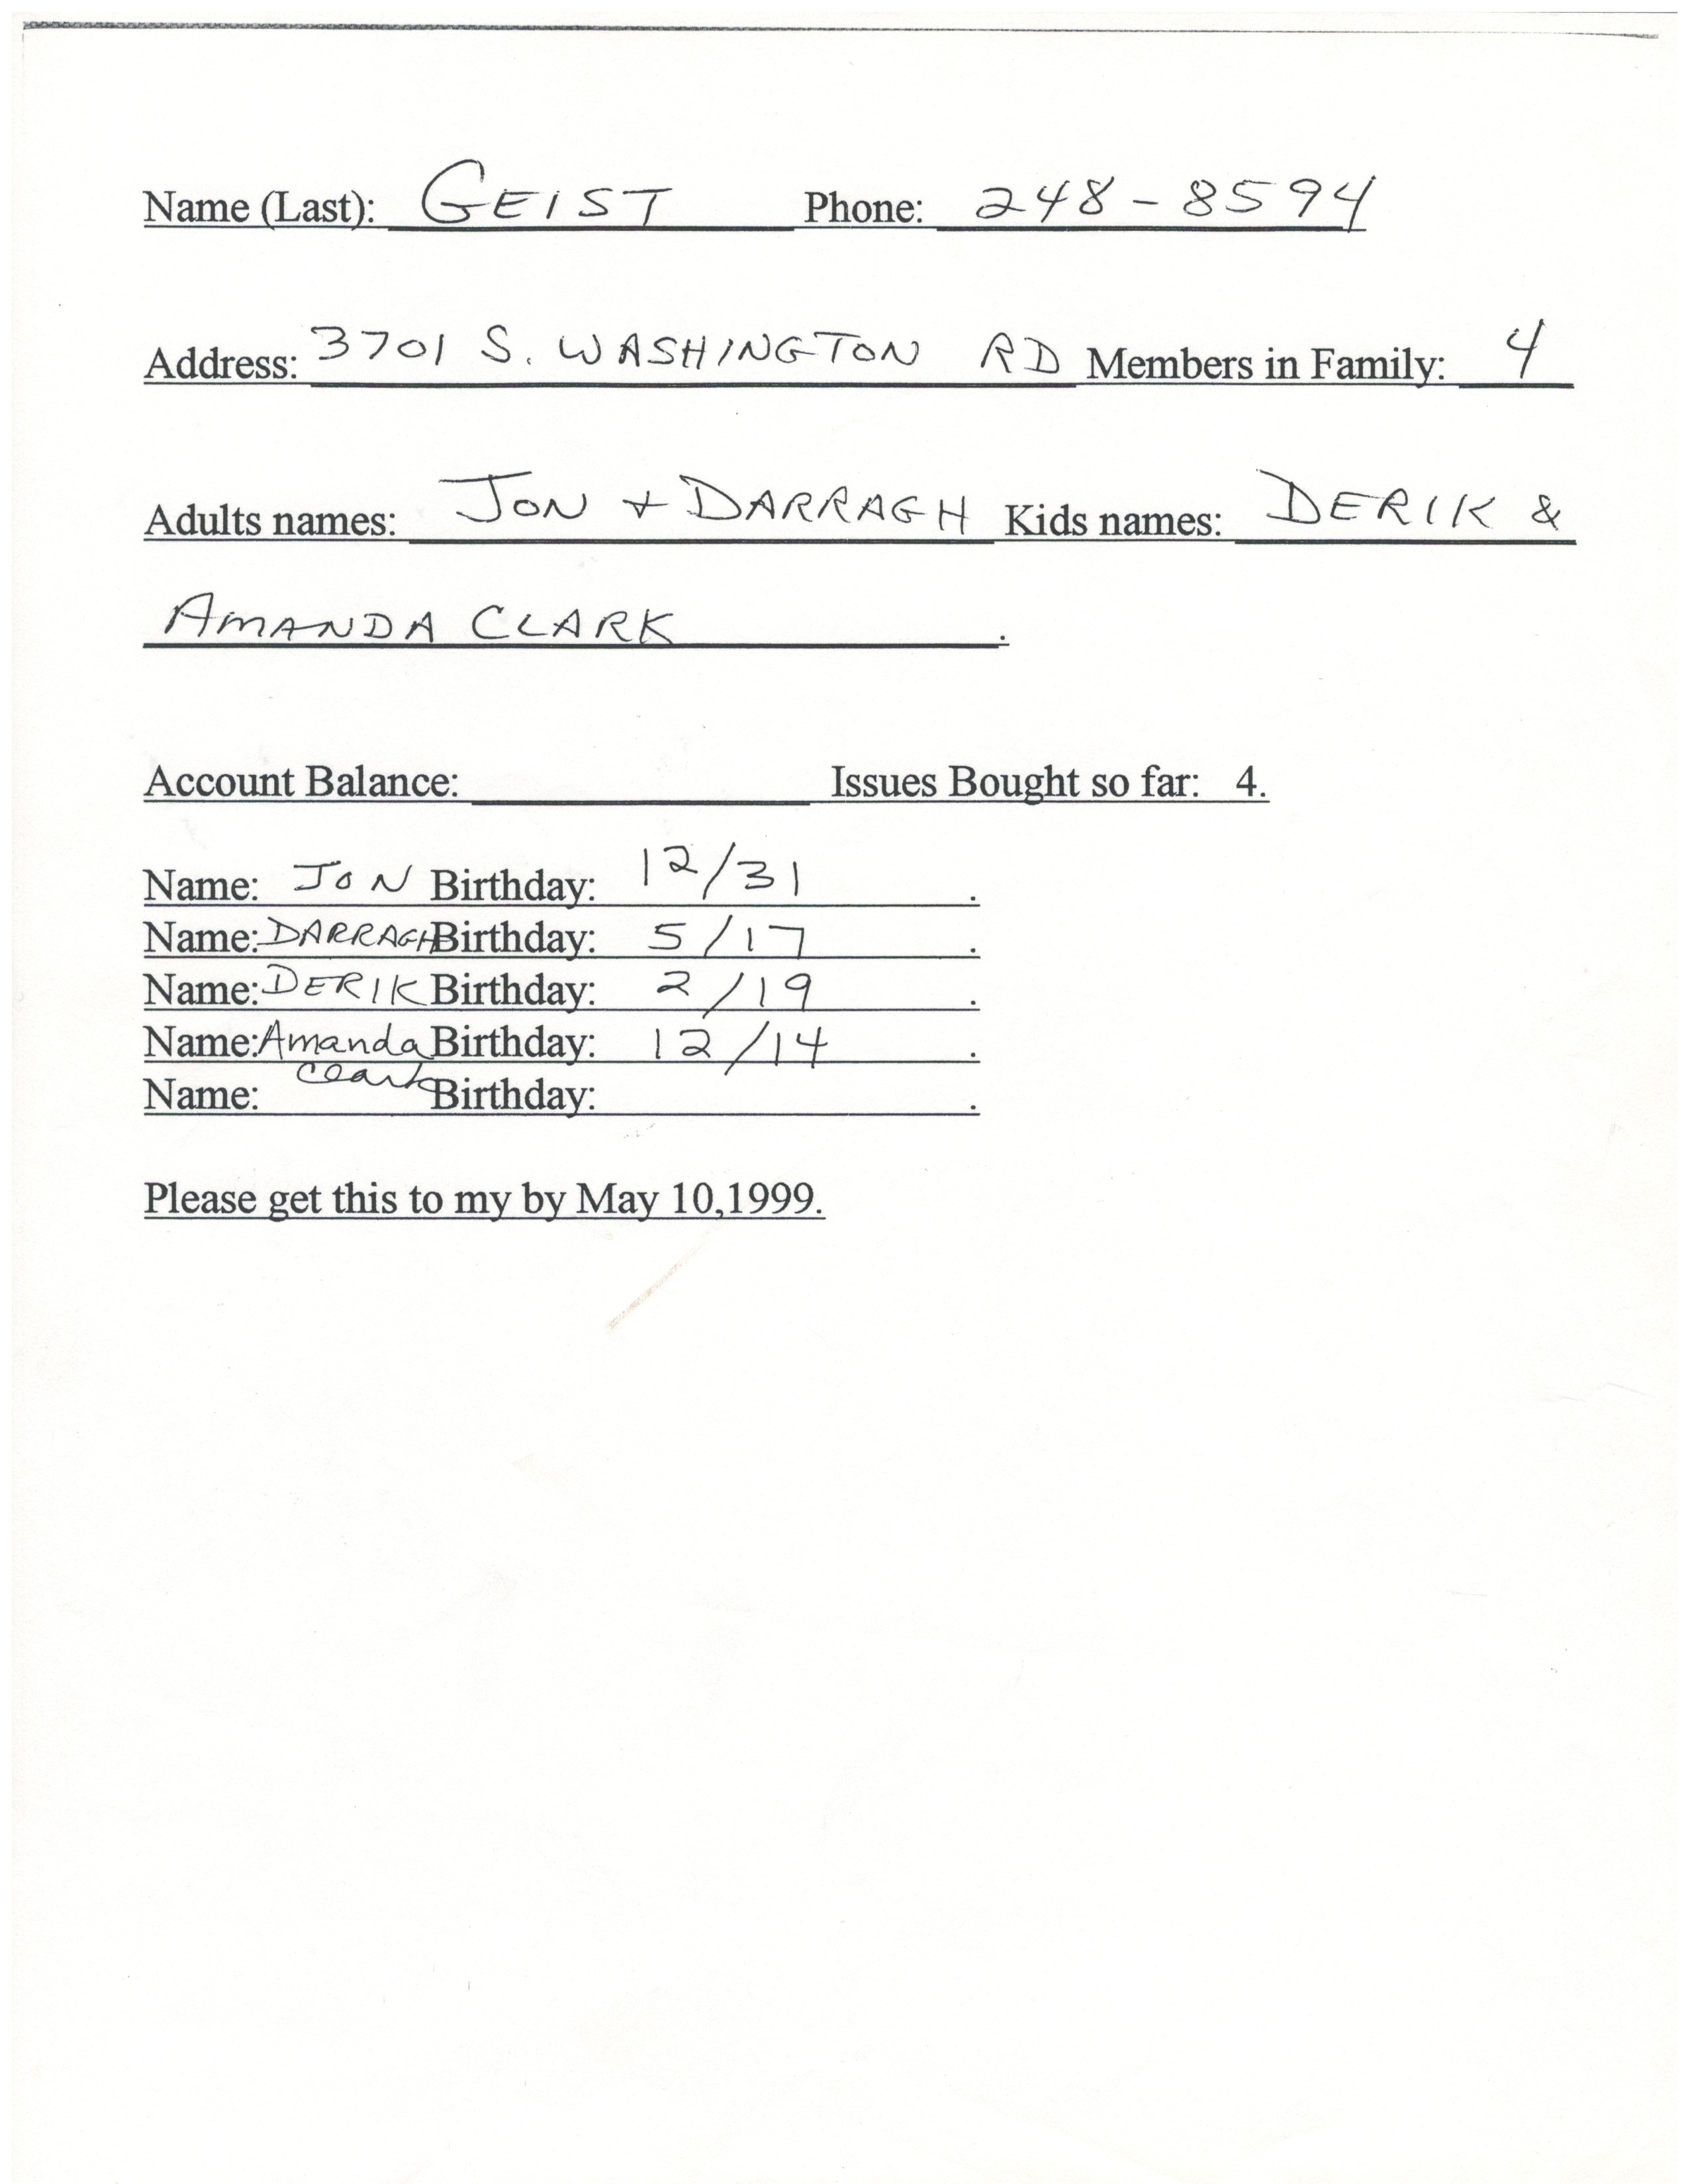 Name (Last): GEIST Phone: 248-8594
Address: 3701 S. WASHINGTON RD Members in Family: 4
Adults names: JON + DARRAGH Kids names: DERIK &
AMANDA CLARK .
Account Balance: Issues Bought so far: 4.
Name: JON Birthday: 12/31 .
Name: DARRAGH Birthday: 5/17 .
Name: DERIK Birthday: 2/19 .
Name: Amanda Birthday: 12/14 .
Name: Clark Birthday: .
Please get this to my by May 10,1999.